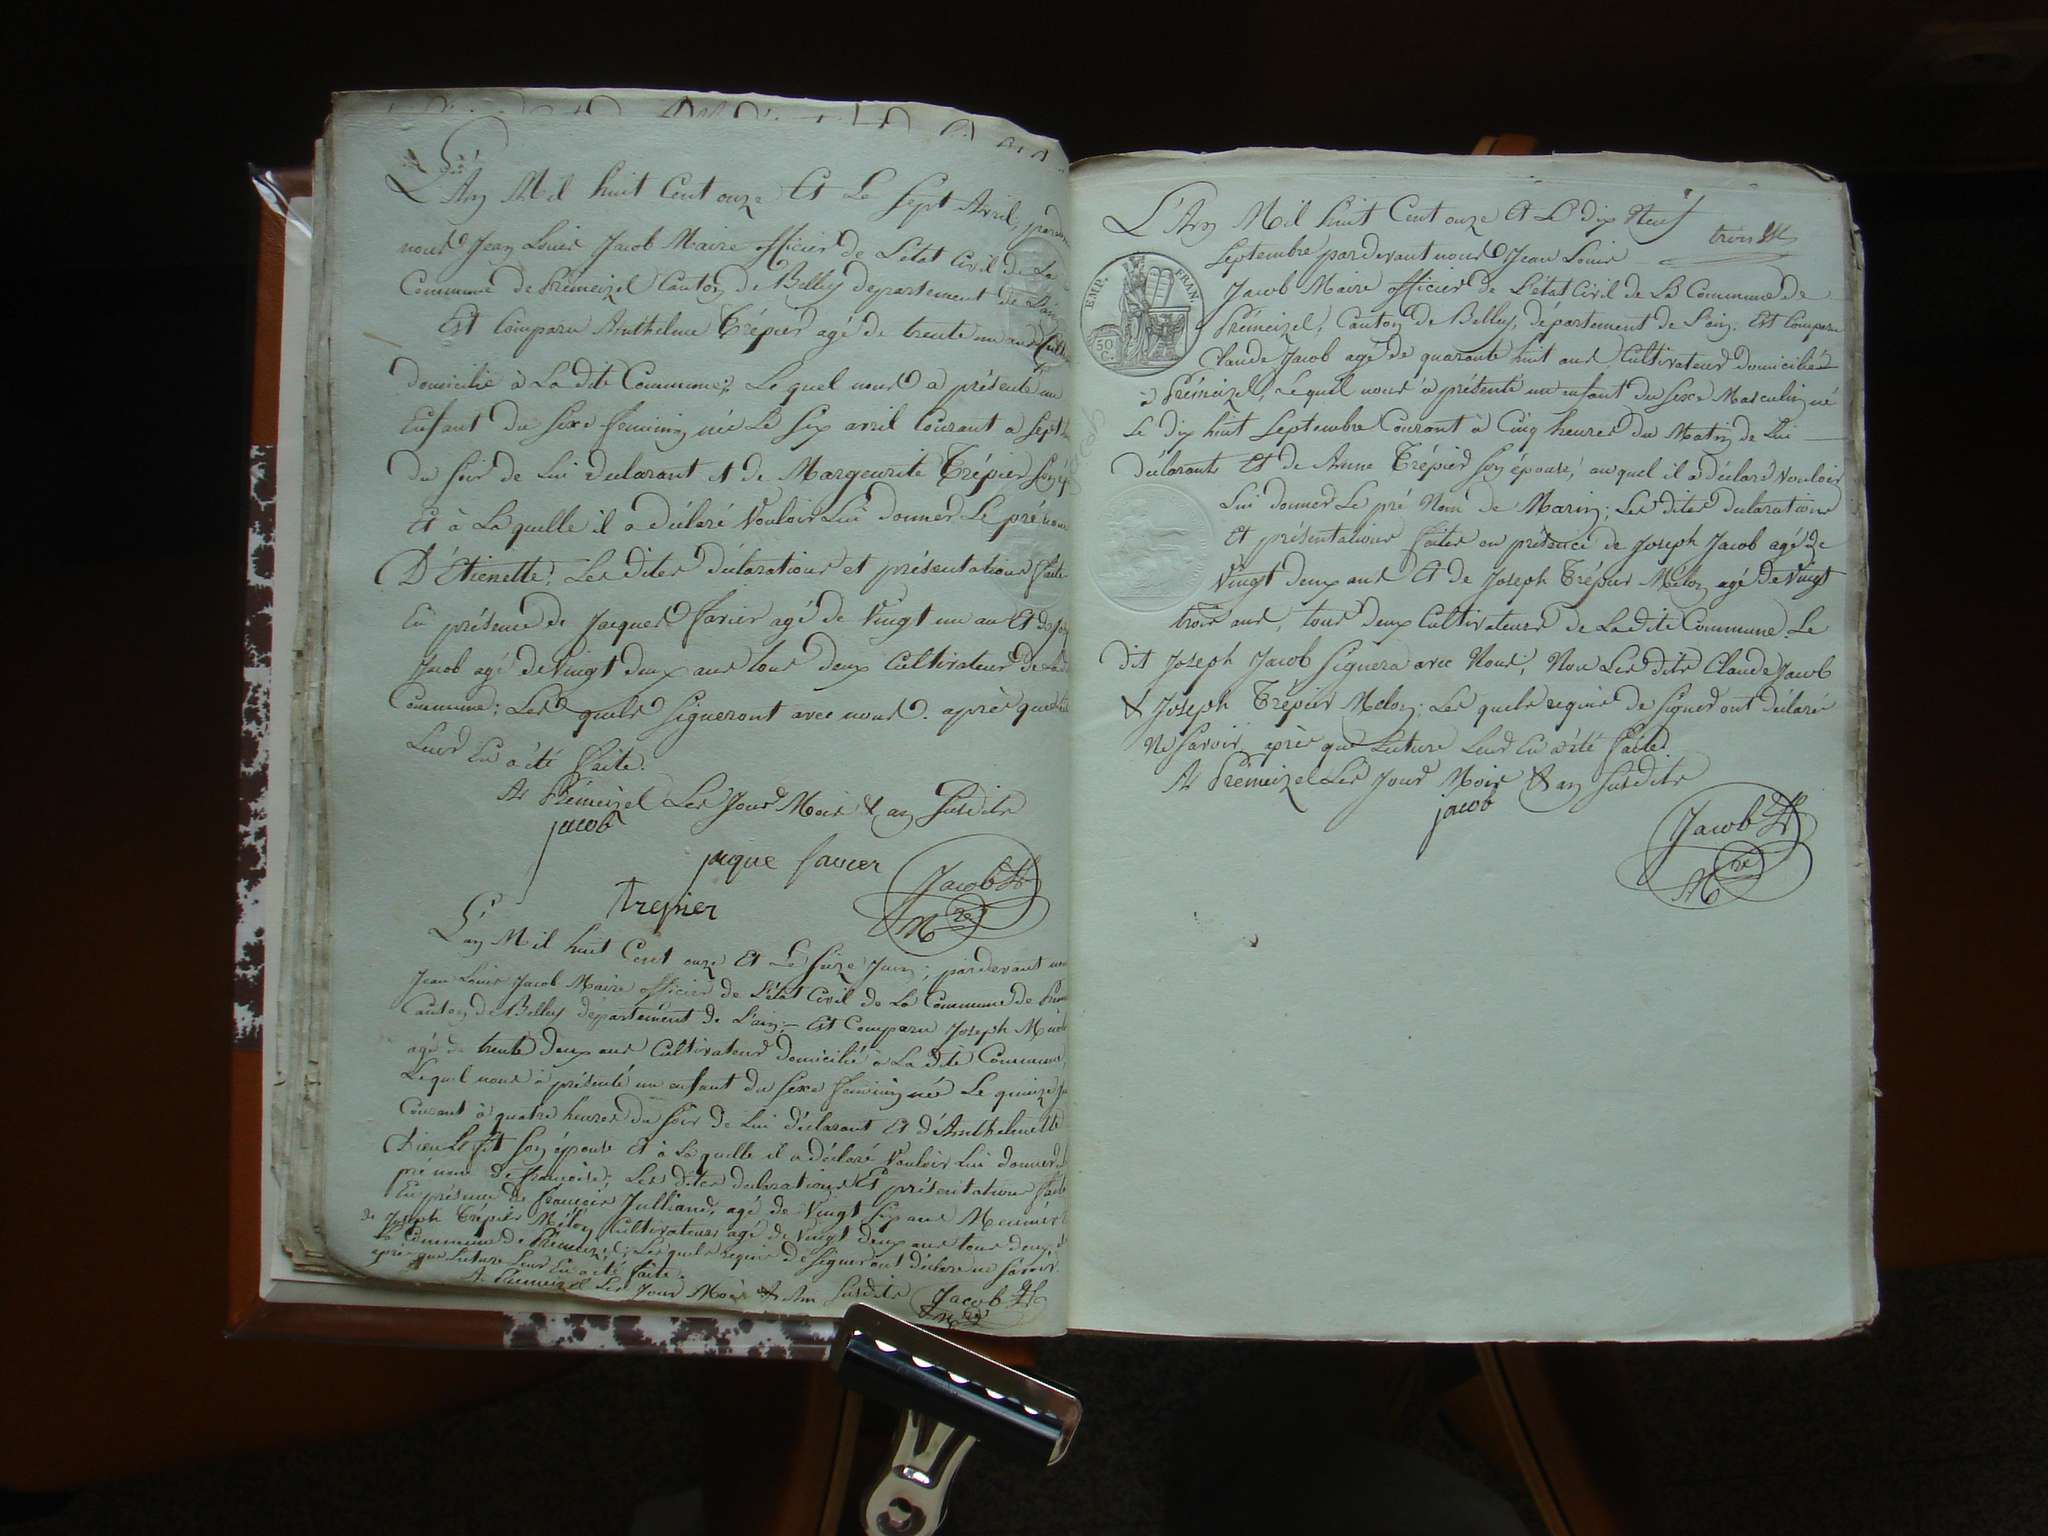 L'An Mil huit Cent onze Et Le Sept Avril, pardevant
nous Jean Louis Jacob Maire officier de L'état Civil de La
Commune de Prémeizel Canton de Belley département de L'ain
Est Comparu Anthelme Trépier agé de trente un ans
domicilié à La dite Commune; Le quel nous a présenté un
Enfant du Sexe feminin née Le Six avril Courant a Sept
du Soir de Lui déclarant et de Margeurite Trépier Son
Et à La quelle il a déclaré Vouloir Lui donner Le prénom
D'Etienette; Les dites déclarations et présentations faites
En présence de Jacques favier agé de Vingt un an Et de
Jacob agé de Vingt deux ans tous deux Cultivateur de
Commune; Les quels Signeront avec nous après que
Leur En a été faite.
At Prémeizel Les Jour Mois & an Susdits
jacob
jaque favier
trepier
Jacob
M re
L'an Mil huit Cent onze Et Le Seize Juin; pardevant nous
Jean Louis Jacob Maire officier de L'état Civil de La Commune de
Canton de Belley département de L'ain; Est Comparu Joseph
agé de trente deux ans Cultivateur domicilié à La dite Commune,
Lequel nous à présenté un enfant du Sexe feminin née Le quinze
Courant à quatre heures du Soir de Lui déclarant Et d'Anthelmette
Dieu Le fit Son épouse Et à La quelle il a déclaré Vouloir Lui donner
pré nom de francoise; Les dites déclarations Et présentations faites
En présence de francois Julliand, agé de Vingt Sept ans Meunier
de Joseph Trépier Mélon Cultivateur agé de Vingt deux ans tous deux
La Commune de Prémeizel; Les quels requis de Signer ont déclaré ne Savoir
après que Lecture Leur En a été faite.
A Prémeizel Les Jour Mois & An Susdits
Jacob
M re
L'An Mil huit Cent onze Et Le dix Neuf
trois
Septembre pardevant nous Jean Louis
EMP. FRAN.
50 C.
Jacob Maire officier de L'état Civil de La Commune de
Prémeizel, Canton de Belley, département de L'ain. Est Comparu
Claude Jacob agé de quarante huit ans, Cultivateur domicilié
à Prémeizel, Lequel nous à présenté un enfant du Sexe Masculin né
Le dix huit Septembre Courant à Cinq heures du Matin de Lui
déclarant Et de Anne Trépier Son épouse, auquel il a déclaré Vouloir
Lui donner Le pré Nom de Marin; Les dites déclarations
Et présentations faites en présence de Joseph Jacob agé de
Vingt deux ans Et de Joseph Trépier Mélon agé de Vingt
trois ans, tous deux Cultivateurs de La dite Commune. Le
dit Joseph Jacob Signera avec Nous, Non Les dits Claude Jacob
& Joseph Trépier Melon; Les quels requis de Signer ont déclaré
Ne Savoir après que Lecture Leur En a été faite.
At Prémeizel Les Jour Mois & an Susdits
jacob
Jacob
M re